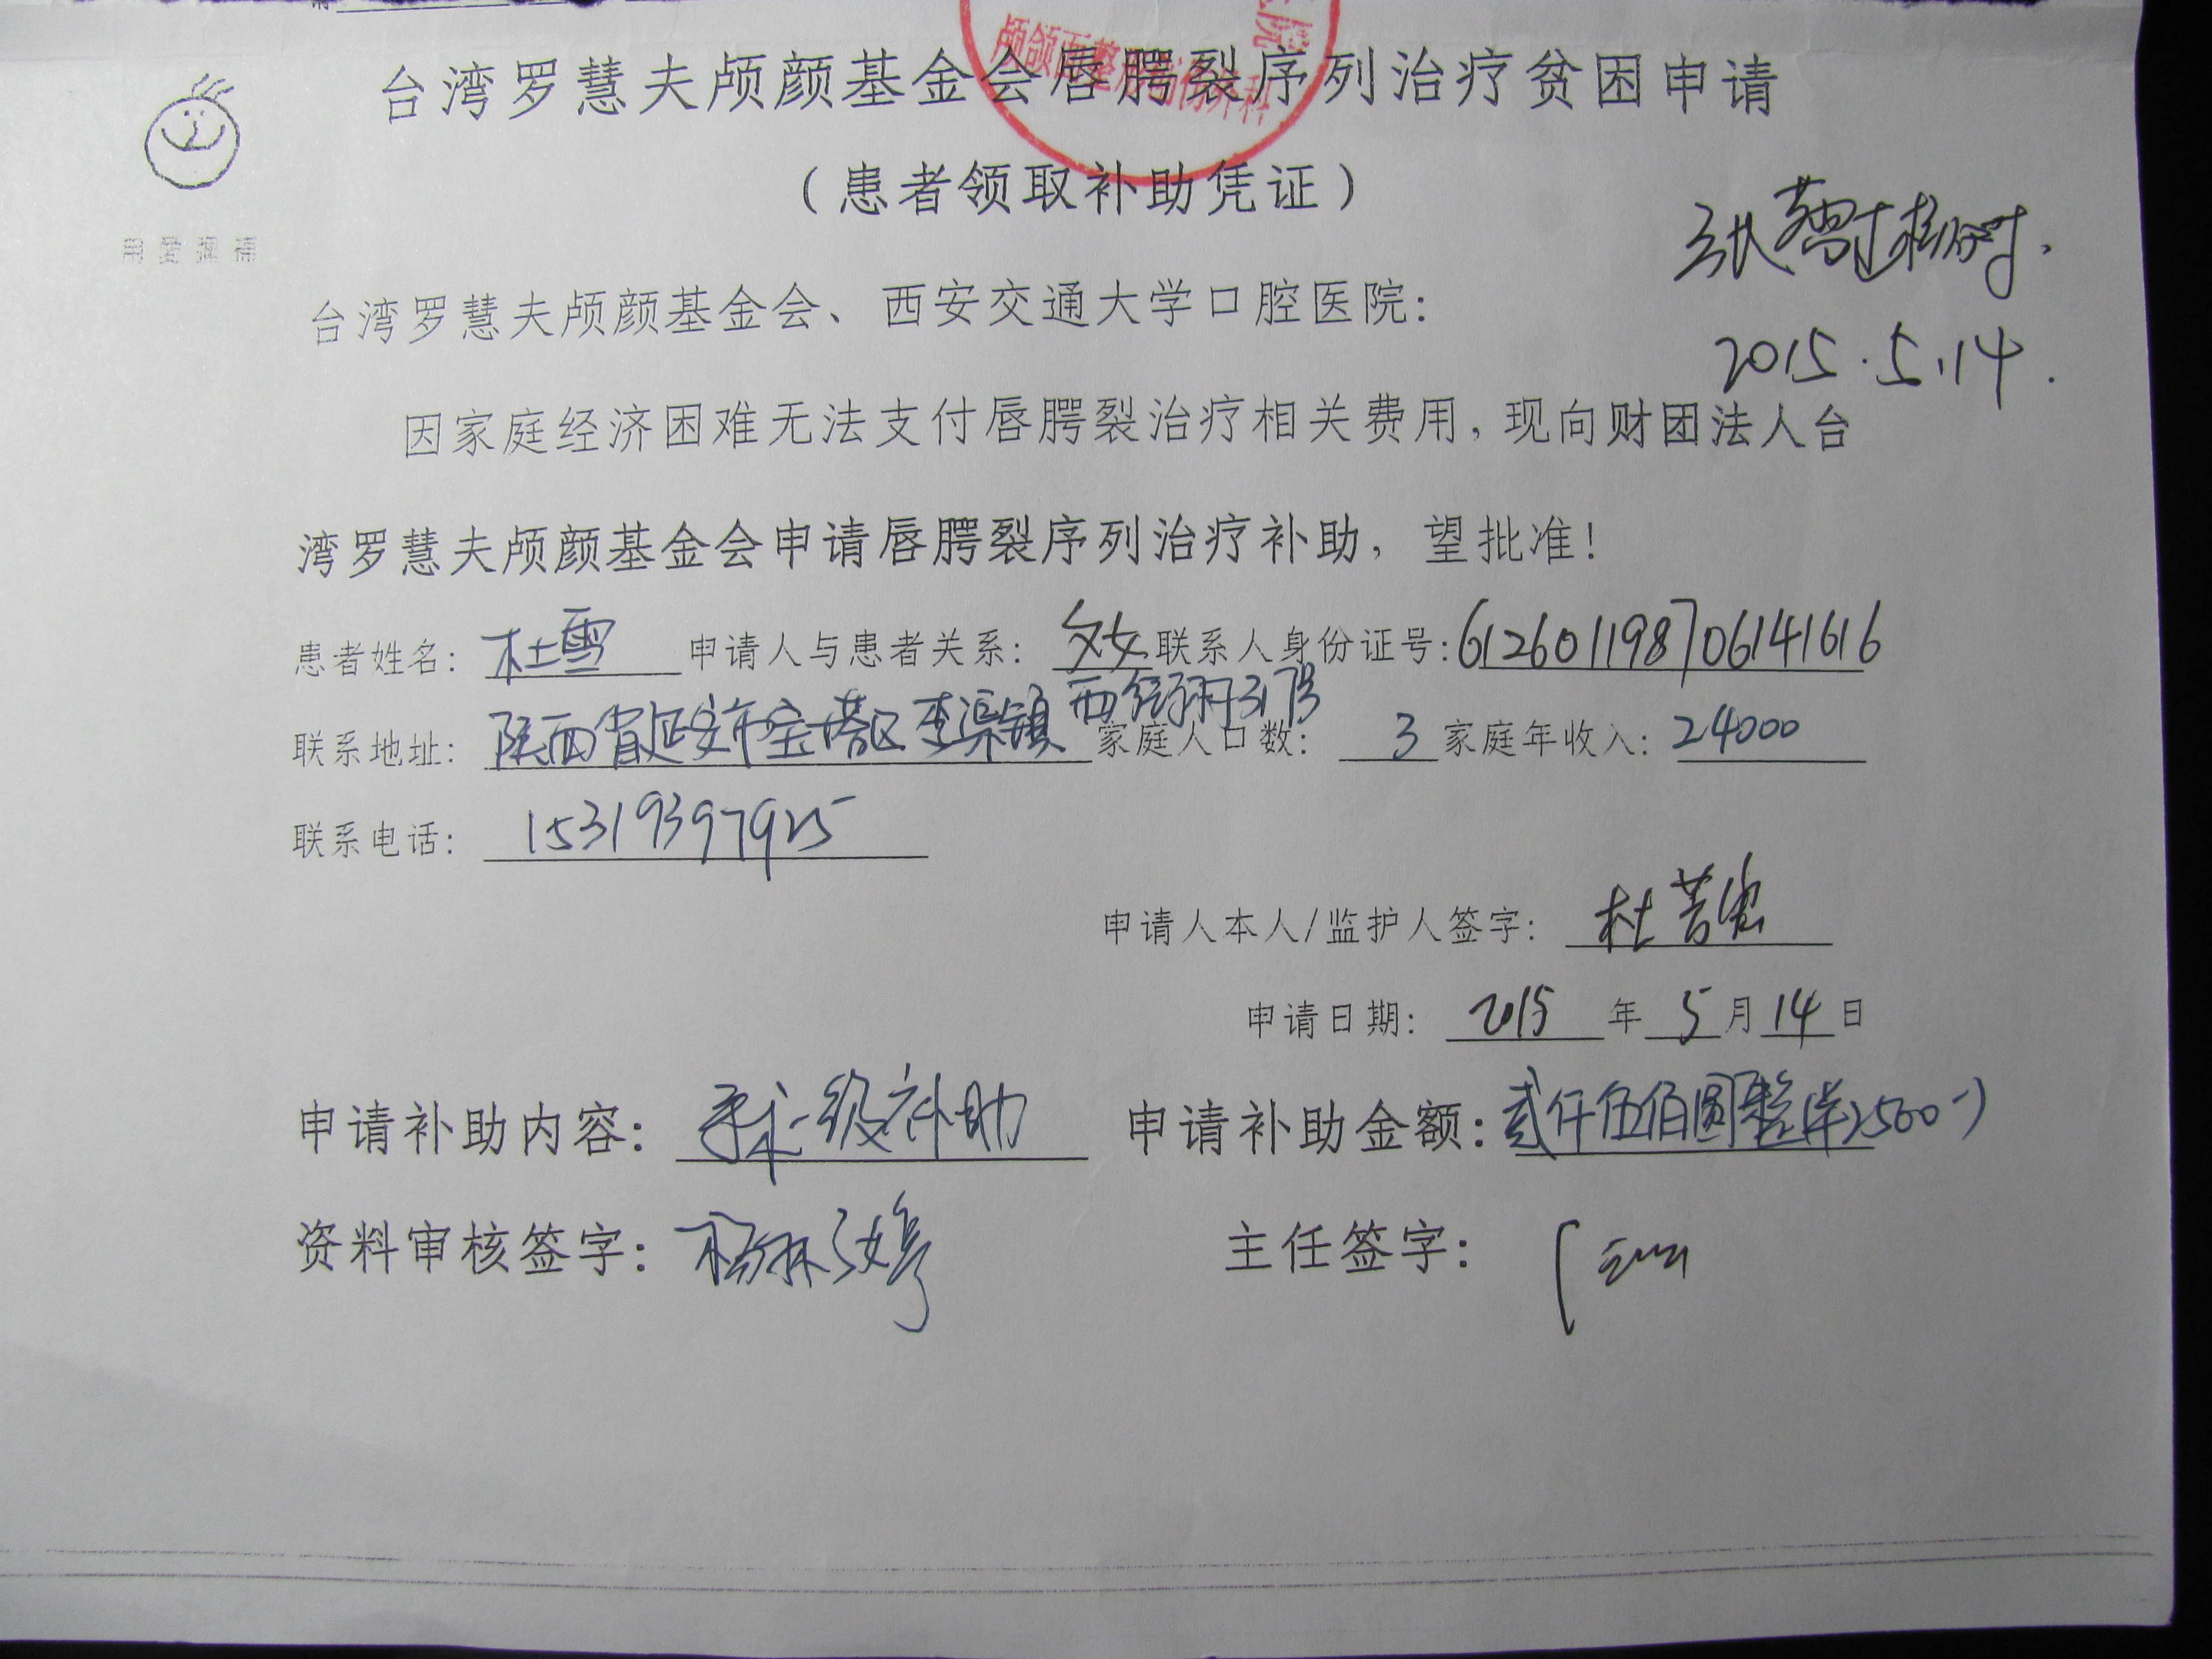 台湾罗慧夫颅颜基金会唇腭裂序列治疗贫困申请
（患者领取补助凭证）
用爱弥补
2015.5.14.
台湾罗慧夫颅颜基金会、西安交通大学口腔医院：
因家庭经济困难无法支付唇腭裂治疗相关费用，现向财团法人台
湾罗慧夫颅颜基金会申请唇腭裂序列治疗补助，望批准！
患者姓名：杜雪 申请人与患者关系：父女 联系人身份证号：612601198706141616
联系地址：陕西省延安市宝塔区李渠镇 家庭人口数：3 家庭年收入：24000
联系电话：15319397925
申请人本人/监护人签字：杜
申请日期：2015年5月14日
申请补助内容：手术一级补助 申请补助金额：贰仟伍佰圆整(¥2500-)
资料审核签字： 主任签字：